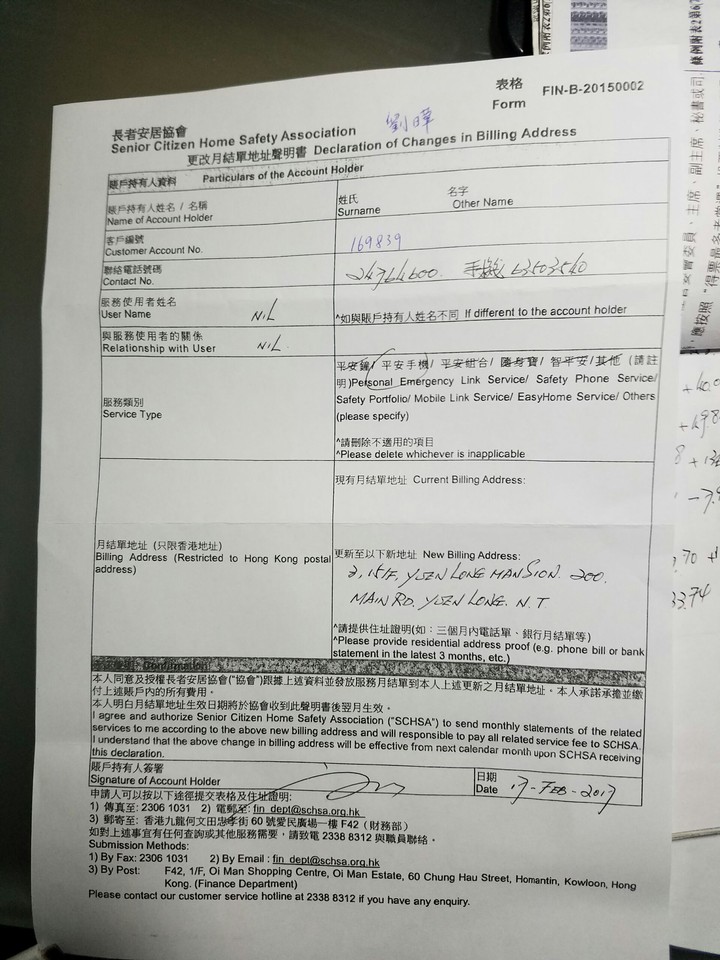 表格
Form FIN-B-20150002
長者安居協會
劉暐
Senior Citizen Home Safety Association
更改月結單地址聲明書 Declaration of Changes in Billing Address
賬戶持有人資料 Particulars of the Account Holder
賬戶持有人姓名 / 名稱
Name of Account Holder
姓氏
Surname
名字
Other Name
客戶編號
Customer Account No.
169839
聯絡電話號碼
Contact No.
手機 63503540
服務使用者姓名
User Name
NiL
^如與賬戶持有人姓名不同 If different to the account holder
與服務使用者的關係
Relationship with User
NiL
服務類別
Service Type
平安鐘/ 平安手機/ 平安組合/ 隨身寶/ 智平安/ 其他 (請註
明)Personal Emergency Link Service/ Safety Phone Service/
Safety Portfolio/ Mobile Link Service/ EasyHome Service/ Others
(please specify)
^請刪除不適用的項目
^Please delete whichever is inapplicable
現有月結單地址 Current Billing Address:
月結單地址 (只限香港地址)
Billing Address (Restricted to Hong Kong postal
address)
更新至以下新地址 New Billing Address:
2, 15/F, YUEN LONG MANSION. 200.
MAIN RD. YUEN LONG. N.T
^請提供住址證明(如：三個月內電話單、銀行月結單等)
^Please provide residential address proof (e.g. phone bill or bank
statement in the latest 3 months, etc.)
Confirmation
本人同意及授權長者安居協會("協會")跟據上述資料並發放服務月結單到本人上述更新之月結單地址。本人承諾承擔並繳
付上述賬戶內的所有費用。
本人明白月結單地址生效日期將於協會收到此聲明書後翌月生效。
I agree and authorize Senior Citizen Home Safety Association ("SCHSA") to send monthly statements of the related
services to me according to the above new billing address and will responsible to pay all related service fee to SCHSA.
I understand that the above change in billing address will be effective from next calendar month upon SCHSA receiving
this declaration.
賬戶持有人簽署
Signature of Account Holder
日期
Date 17-FEB-2017
申請人可以按以下途徑提交表格及住址證明:
1) 傳真至: 2306 1031 2) 電郵至: fin_dept@schsa.org.hk
3) 郵寄至: 香港九龍何文田忠孝街 60 號愛民廣場一樓 F42（財務部）
如對上述事宜有任何查詢或其他服務需要，請致電 2338 8312 與職員聯絡。
Submission Methods:
1) By Fax: 2306 1031 2) By Email : fin_dept@schsa.org.hk
3) By Post: F42, 1/F, Oi Man Shopping Centre, Oi Man Estate, 60 Chung Hau Street, Homantin, Kowloon, Hong
Kong. (Finance Department)
Please contact our customer service hotline at 2338 8312 if you have any enquiry.